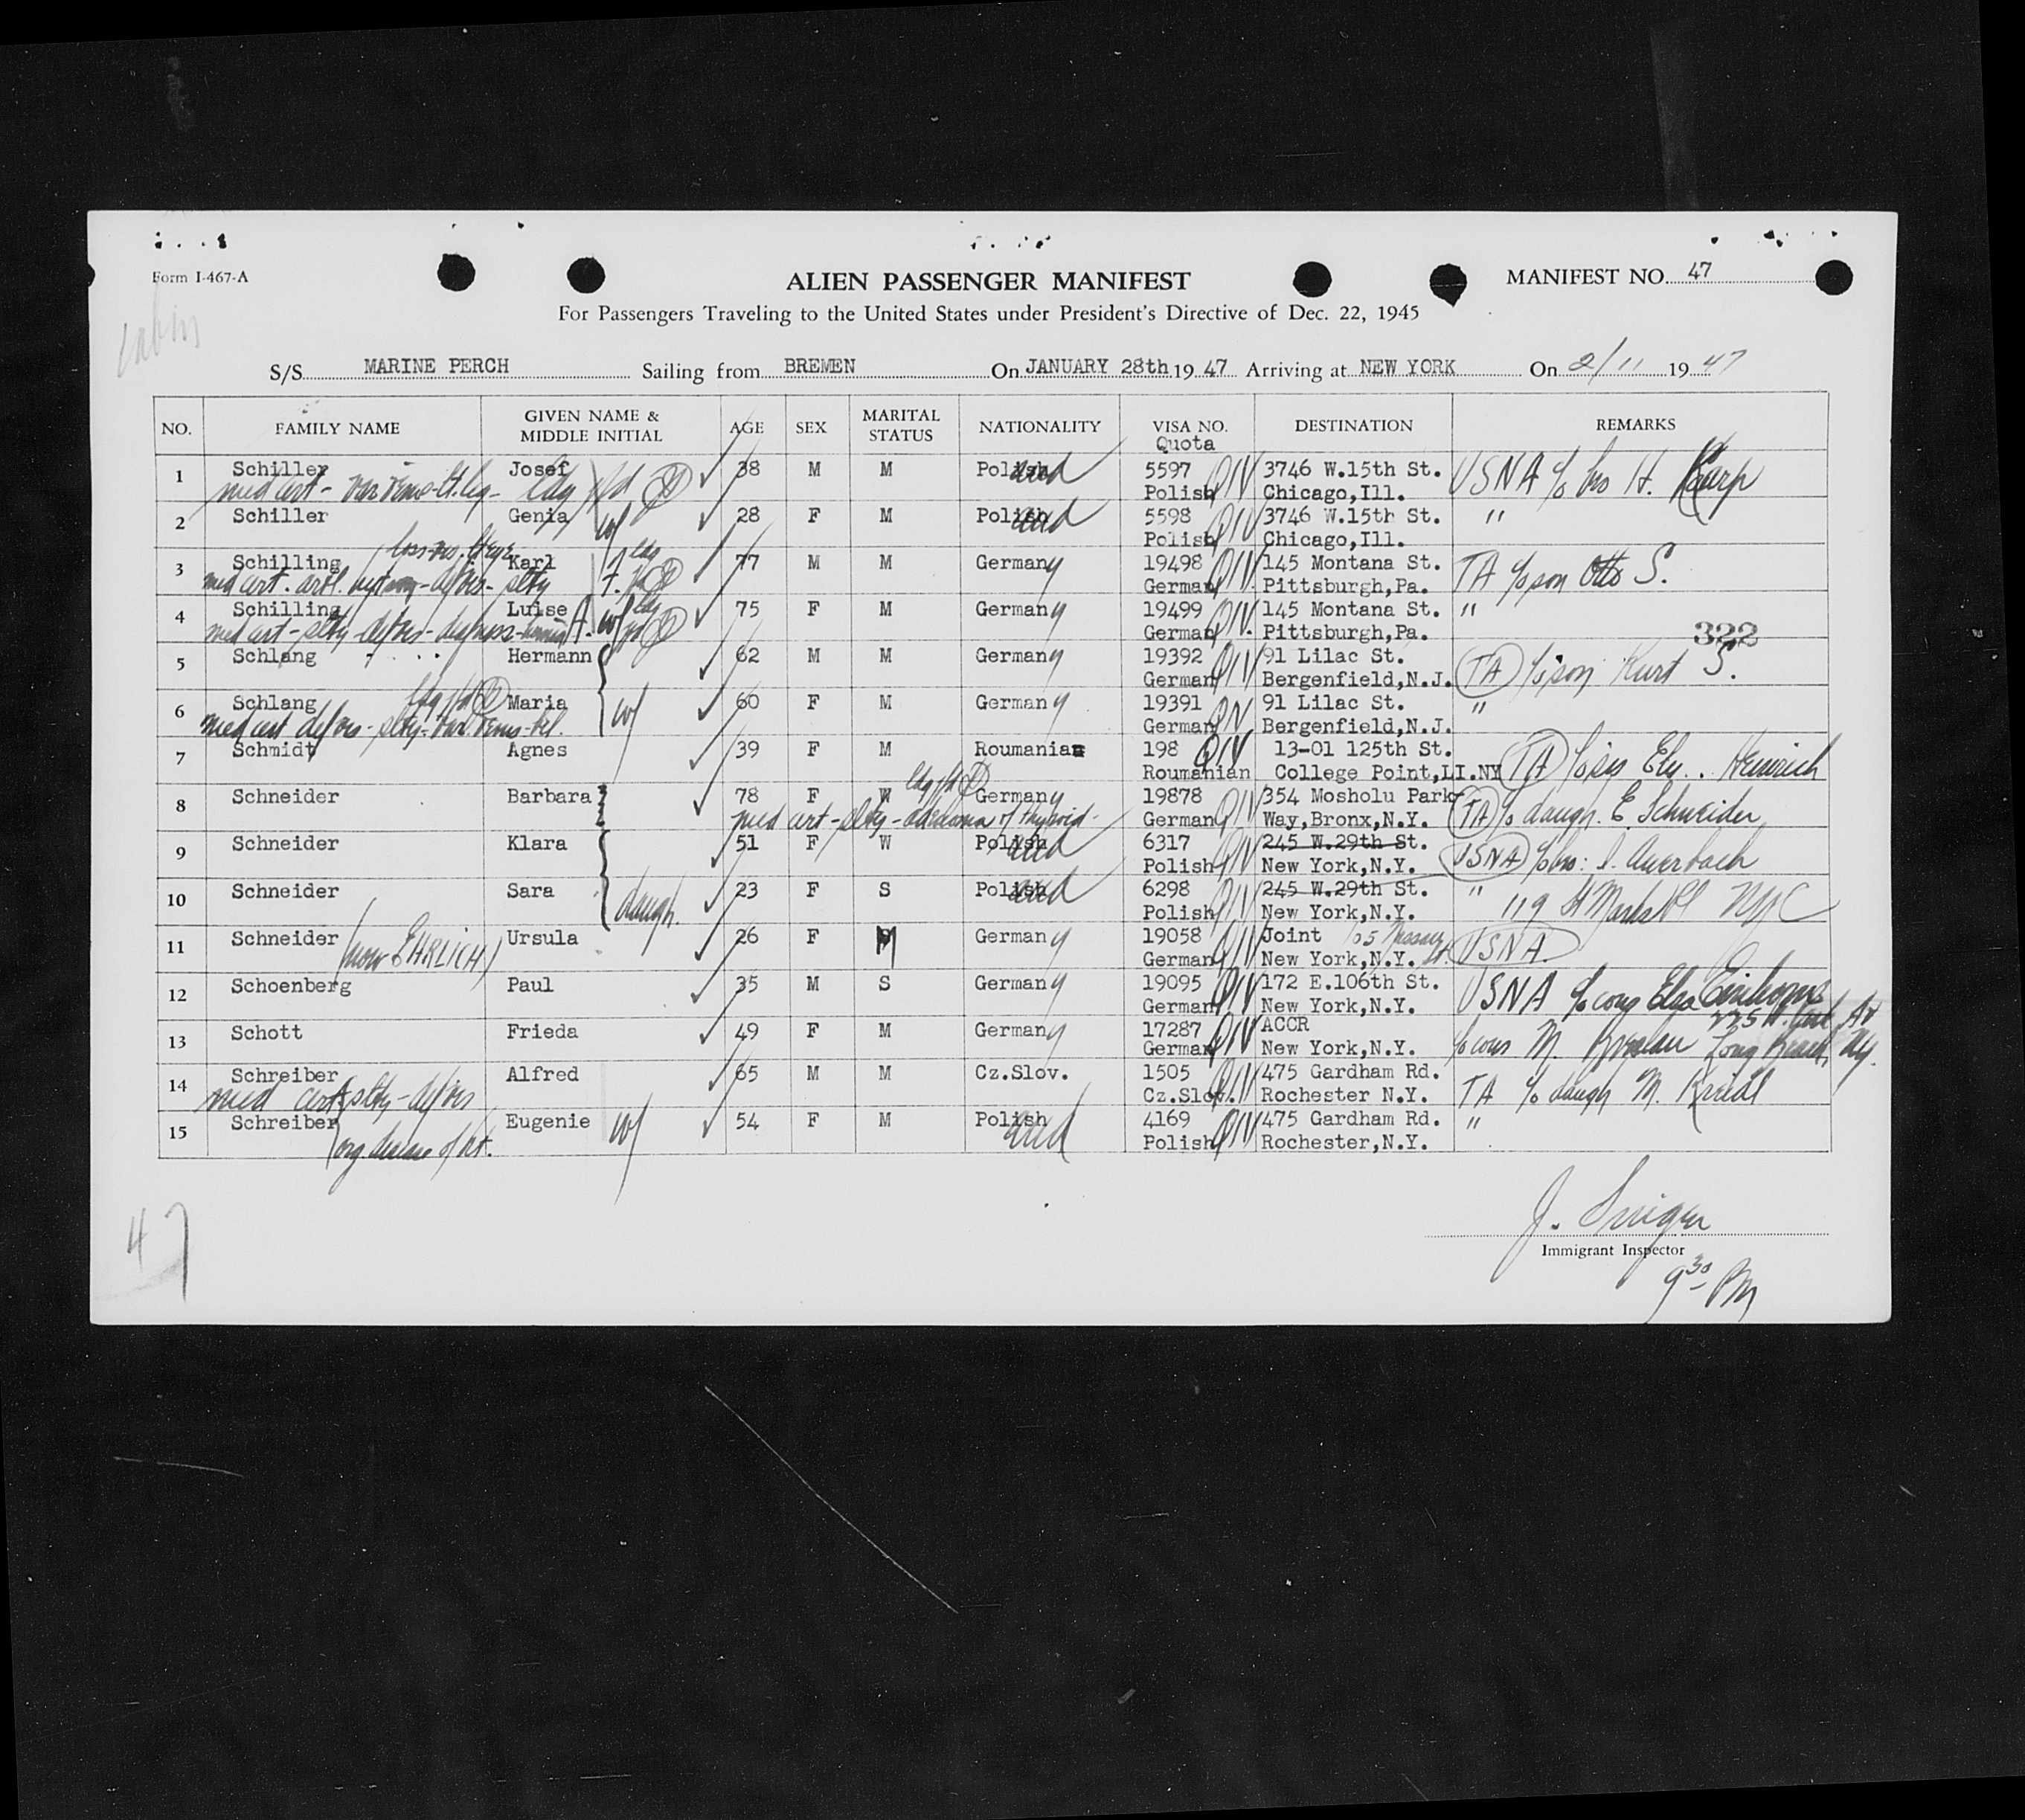 Form I-467-A
ALIEN PASSENGER MANIFEST
MANIFEST NO. 47
For Passengers Traveling to the United States under President's Directive of Dec. 22, 1945
S/S MARINE PERCH Sailing from BREMEN On JANUARY 28th 19 47 Arriving at NEW YORK On 2/11 19 47
NO. FAMILY NAME GIVEN NAME & MIDDLE INITIAL AGE SEX MARITAL STATUS NATIONALITY VISA NO. Quota DESTINATION REMARKS
1 Schiller Josef 38 M M Polish 5597 QIV 3746 W.15th St. USNA c/o bro H. Karp
med cert - Polish Chicago,Ill.
2 Schiller Genia w/ 28 F M Polish 5598 QIV 3746 W.15th St. "
Polish Chicago,Ill.
3 Schilling Karl 77 M M Germany 19498 QIV 145 Montana St. TA c/o son Otto S.
med cert. German Pittsburgh,Pa.
4 Schilling Luise w/ 75 F M Germany 19499 QIV. 145 Montana St. "
med cert - slty - German Pittsburgh,Pa.
322
5 Schlang Hermann 62 M M Germany 19392 QIV 91 Lilac St. TA c/o son Kurt S.
German Bergenfield,N.J.
6 Schlang Maria w/ 60 F M Germany 19391 QIV 91 Lilac St. "
med cert German Bergenfield,N.J.
7 Schmidt Agnes 39 F M Roumania 198 QIV 13-01 125th St. TA c/o sis Ely.. Heinrich
Roumanian College Point,LI.NY
8 Schneider Barbara 78 F W Germany 19878 QIV 354 Mosholu Park- TA c/o daugh. E Schneider
med cert - slty - adenoma of thyroid - German Way,Bronx,N.Y.
9 Schneider Klara 51 F W Polish 6317 QIV 245 W.29th St. USNA c/o bro: I. Auerbach
Polish New York,N.Y.
10 Schneider Sara daugh. 23 F S Polish 6298 QIV 245 W.29th St. " 119 St Marks Pl NYC
Polish New York,N.Y.
11 Schneider (now EHRLICH) Ursula 26 F M Germany 19058 QIV Joint Nassau St. USNA.
German New York,N.Y.
12 Schoenberg Paul 35 M S Germany 19095 QIV 172 E.106th St. USNA c/o cous Elsa Einhorn
German New York,N.Y.
13 Schott Frieda 49 F M Germany 17287 QIV ACCR c/o cous M. Breslau Long Beach, NY.
German New York,N.Y.
14 Schreiber Alfred 65 M M Cz.Slov. 1505 QIV 475 Gardham Rd. TA c/o daugh M.
med cert slty - Cz.Slov. Rochester N.Y.
15 Schreiber Eugenie w/ 54 F M Polish 4169 QIV 475 Gardham Rd. "
org disease of ht. Polish Rochester,N.Y.
47
Immigrant Inspector
9 30 PM